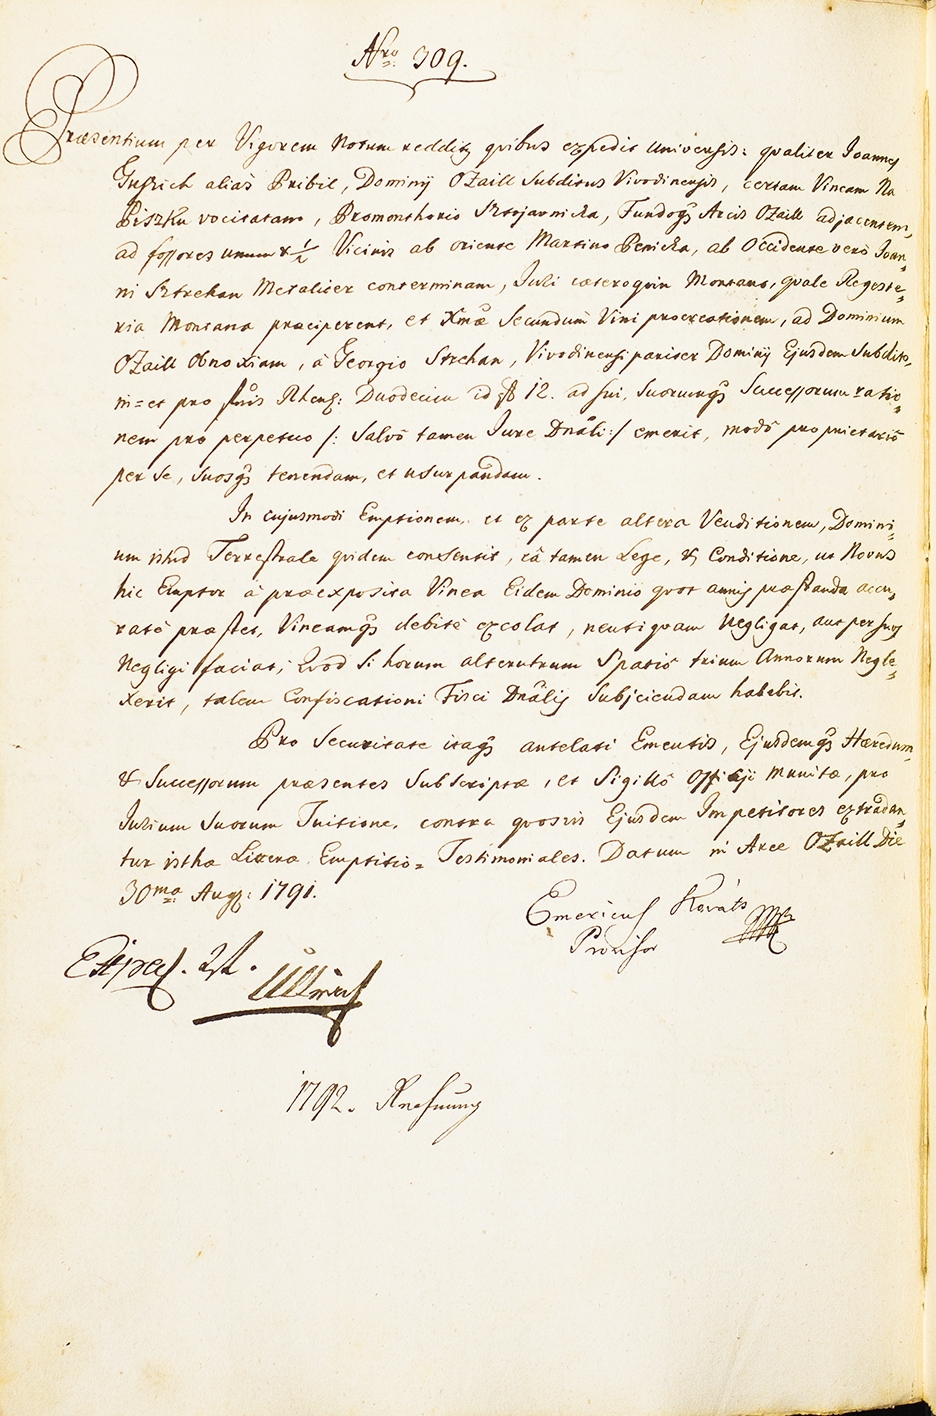 Nro 309.
Præsentium per Vigorem Notum redditq quibus expedit universis: qualiter Joannes
alias Pribil, Dominÿ OZaill Subditus Vivodinensis, certam Vineam Na
Piszku vocitatam, Promonthorio Sztojavnicka, Fundoqs Arcis OZaill adjacentem,
ad fossores unum & 1/2 Vicinis ab oriente Martino Penicka, ab Occidente verò Joan=
ni Sztrehan Metaliter conterminam, Juri cæteroquin Montano, quale Regeste=
ria Montana præciperent, et Xmæ Secundum Vini procreationem, ad Dominium
OZaill Obnoxiam, à Georgio Strehan, Vivodinensi pariter Dominÿ Ejusdem Subdito,
in= et pro flnis Rhens: Duodecim id est fl 12. ad sui, Suorumqs Successorum ratio=
nem pro perpetuo /: Salvô tamen Jure Dnâli :/ emerit, modô proprietariô
per se, suosqs tenendam, et usurpandam.
In cujusmodi Emptionem, et ex parte altera Venditionem, Domini=
um isthud Terrestrale quidem consensit, eâ tamen Lege, & Conditione, ut Novus
hic Emptor à præexposita Vinea Eidem Dominio quot annis præstanda accu=
ratè præstet, Vineamqs debitè excolat, neutiquam Negligat, aut per suos
Negligi faciat; Quod si horum alterutrum Spatiô trium Annorum Negle=
xerit, talem Confiscationi Fisci Dnâlis Subjiciendam habebit.
Pro Securitate itaqs antelati Ementis, Ejusdemqs Hæredum
& Successorum præsentes Subscriptæ, et Sigillô Officÿ munitæ, pro
Jurium Suorum Tuitione, contra quosvis Ejusdem Impetitores extradan=
tur isthæ Litteræ Emptitio= Testimoniales. Datum in Arce OZaill Die
30ma Augs: 1791.
Emericus Kováts
Provisor
1792.